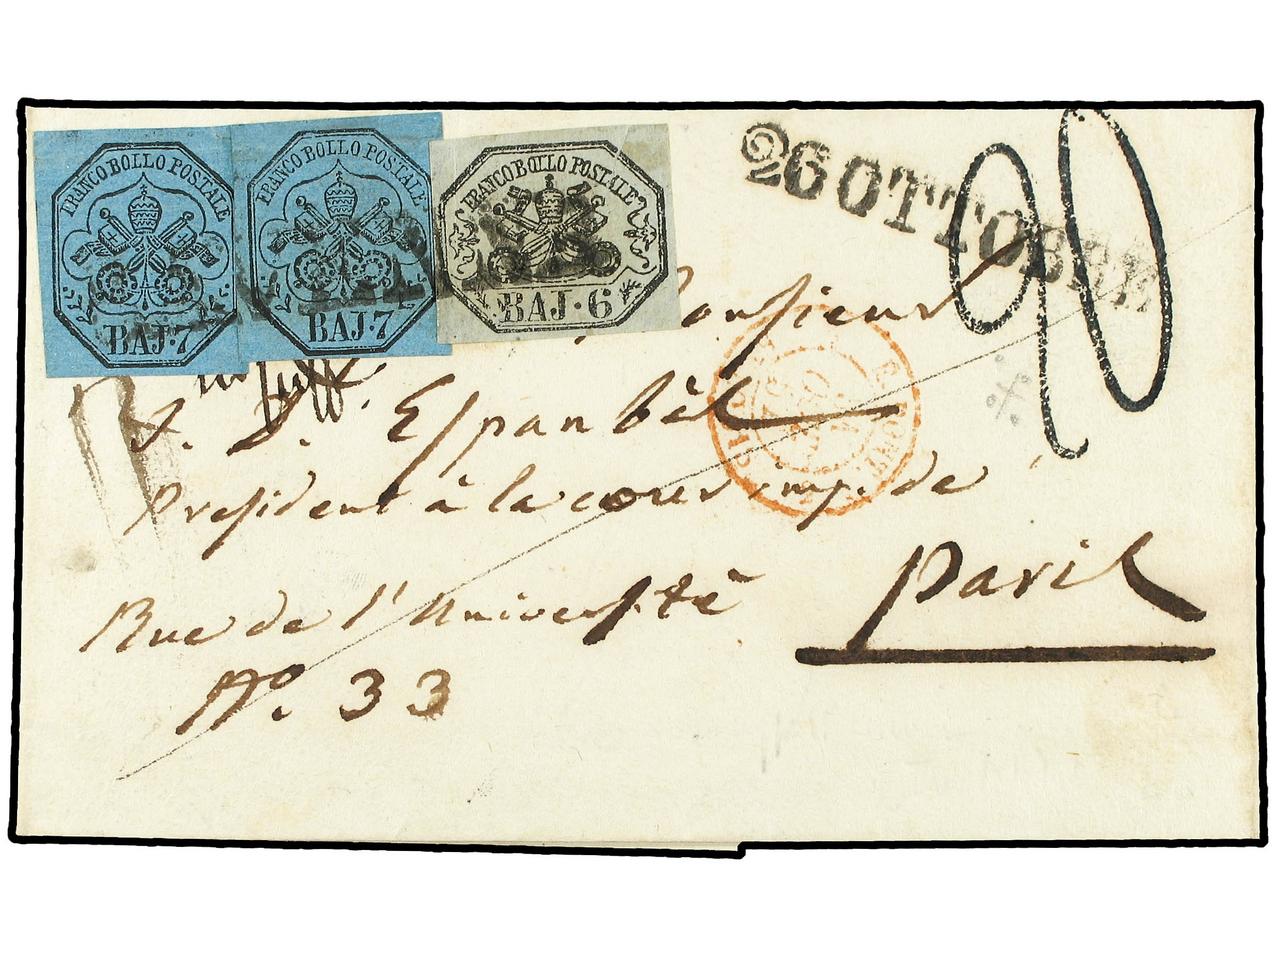 FRANCO BOLLO POSTALE
BAJ·7
FRANCO BOLLO POSTALE
BAJ·7
FRANCO BOLLO POSTALE
BAJ·6
26 OTTOBRE
20
Monsieur
J. D. Espanbêt
Président à la cour imp. de
Paris
Rue de l'Université
No. 33